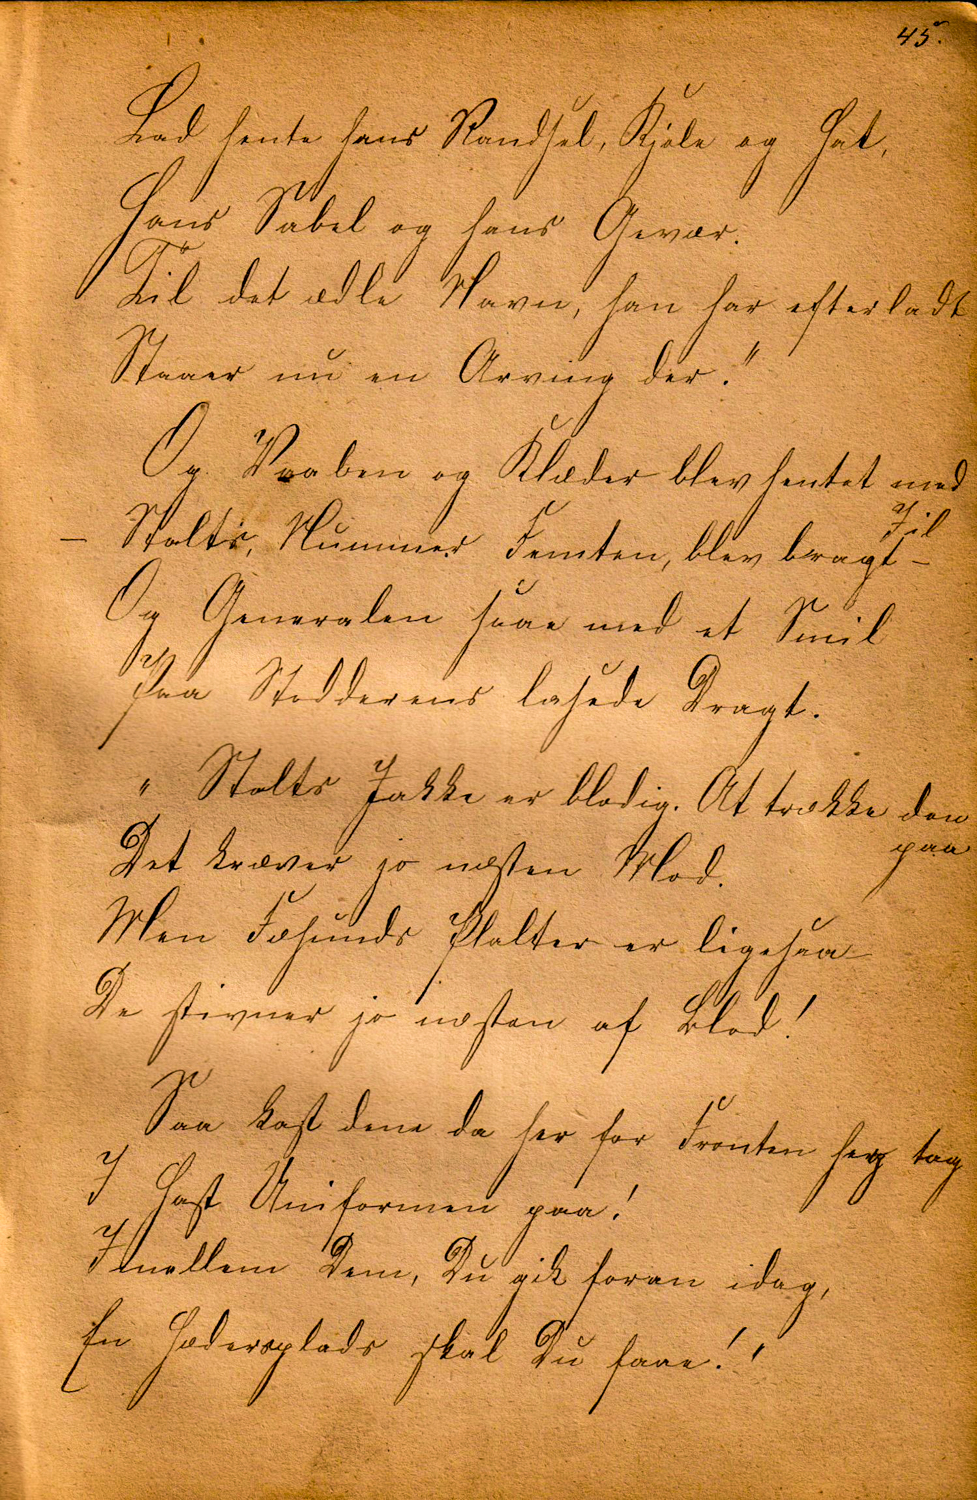 45.
Lad hente hans Randsel, Kjole og Hat,
Hans Sabel og hans Gevær.
Til det ædle Navn, han har efterladt
Staaer nu en Arving der."
Og Vaaben og Klæder blev hentet med
Iil
– Stolts, Nummer Femten, blev bragt –
Og Generalen saae med et Smil
Paa Stodderens lasede Dragt.
" Stolts Jakke er blodig. At trække den
paa
Det kræver jo næsten Mod.
Men Fæhunds Pjalter er ligesaa
De stivner jo næsten af Blod!
Saa kast dene da her for Fronten tag
I Hast Uniformen paa!
Imellem Dem, Du gik foran idag,
En Hædersplads skal Du faae!"